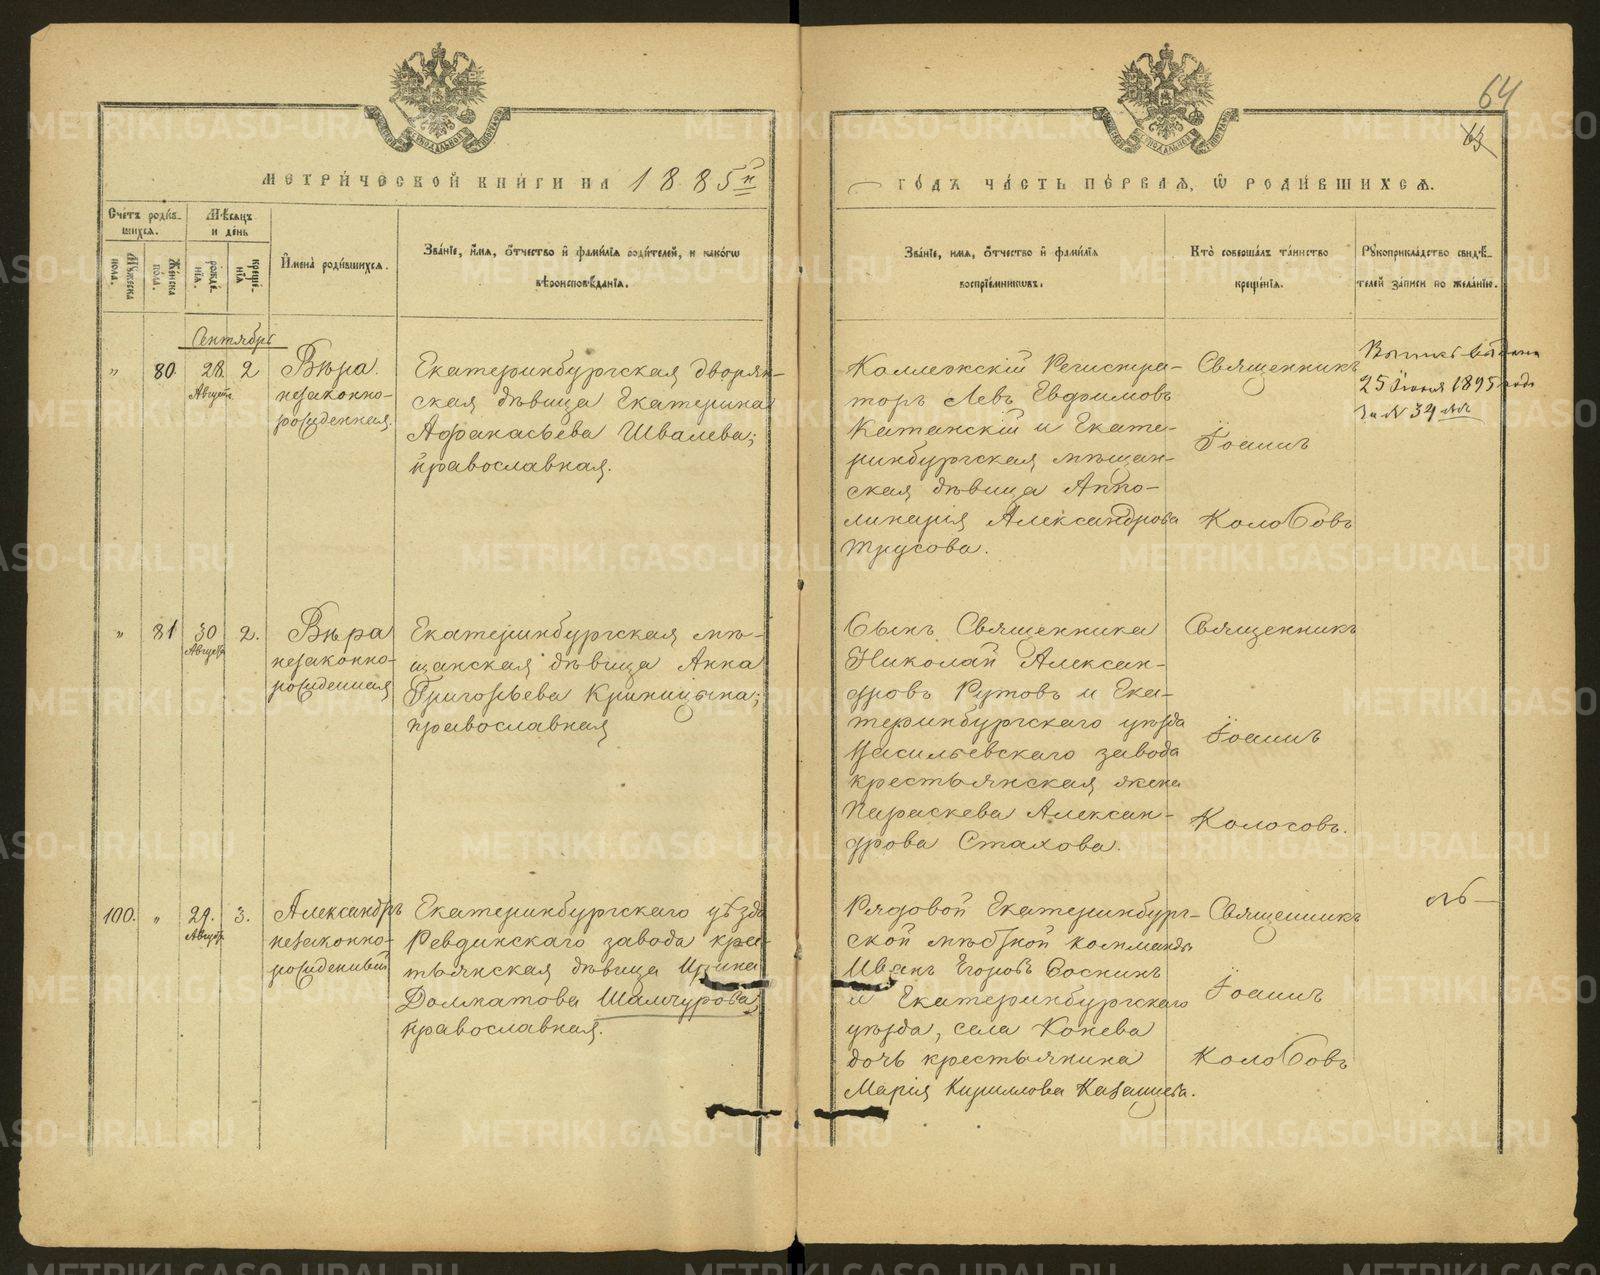 64
63
МЕТРИЧЕСКОЙ КНИГИ НА 1885й
ГОДЪ ЧАСТЬ ПЕРВАЯ, Ѡ РОДИВШИХСЯ.
Счетъ родив-
шихся.
Мужеска
пола.
Женска
пола.
Мѣсяцъ
и день
рожде-
нія.
креще-
нія
Имена родившихся.
Званіе, имя, отчество и фамилія родителей, и какогѡ
вѣроисповѣданія.
Званіе, имя, отчество и фамилія
воспріемниковъ.
Кто совершалъ таинство
крещенія.
Рукоприкладство свидѣ-
телей записи по желанію.
Сентябрь
" 80 28 Августа 2
Вѣра
незаконно-
рожденная.
Екатеринбургская дворян-
ская дѣвица Екатерина
Афанасьева Швалева;
православная.
Коллежскій Регистра-
торъ Левъ Евфимовъ
Катанскій и Екате-
ринбургская мѣщан-
ская дѣвица Аппо-
линарія Александрова
Трусова.
Священникъ
Іоаннъ
Колобовъ
25 Іюня 1895 года
за № 39
" 81 30 Августа 2.
Вѣра
незаконно-
рожденная
Екатеринбургская мѣ-
щанская дѣвица Анна
Григорьева Криницына;
православная
Сынъ Священника
Николай Алексан-
дровъ Рутовъ и Ека-
теринбургскаго уѣзда
Васильевскаго завода
крестьянская жена
Параскева Алексан-
дрова Стахова.
Священникъ
Іоаннъ
Колосовъ.
100. " 29. Августа 3.
Александръ
незаконно-
рожденный
Екатеринбургскаго уѣзда
Ревдинскаго завода кре-
стьянская дѣвица Ирина
Долматова Шамчурова;
православная.
Рядовой Екатеринбург-
ской мѣстной комманды
Иванъ Егоровъ Соснинъ
и Екатеринбургскаго
уѣзда, села Конева
дочь крестьянина
Марія Кириллова Казанцева.
Священникъ
Іоаннъ
Колобовъ
METRIKI.GASO-URAL.RU